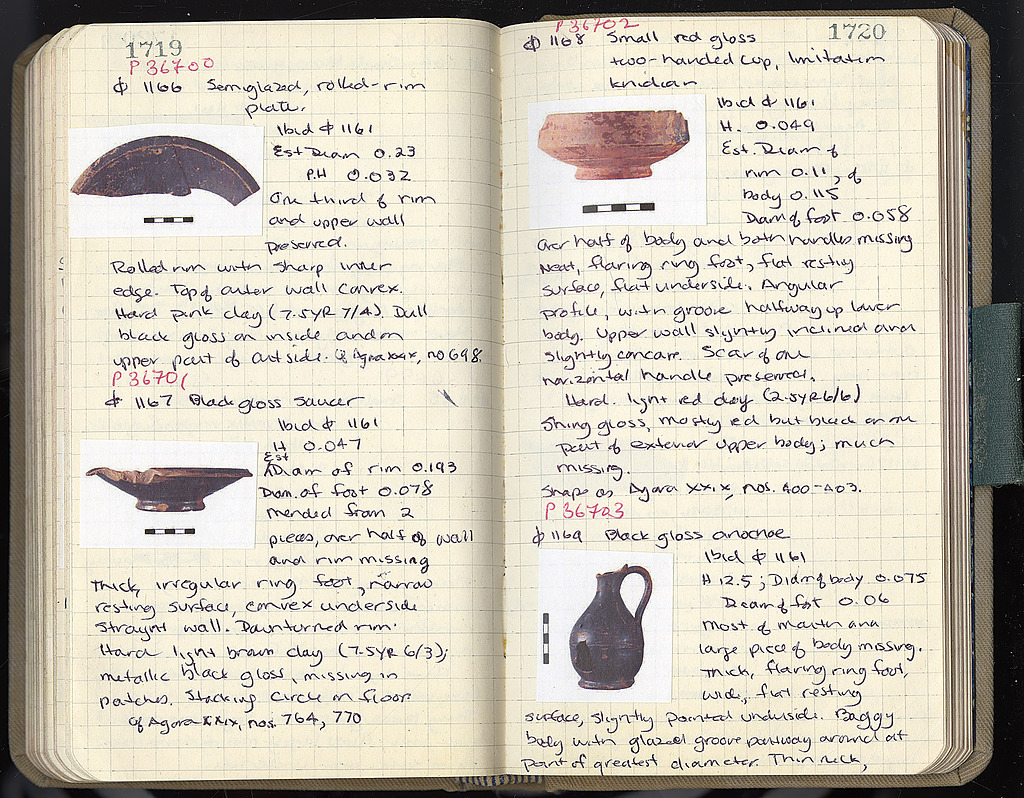 1719
P 36700
ф 1166 Semiglazed, rolled-rim
plate.
Ibid ф 1161
Est Diam 0.23
P.H 0.032
One third of rim
and upper wall
preserved.
Rolled rim with sharp inner
edge. Top of outer wall convex.
Hard pink clay (7.5YR 7/4). Dull
black gloss on inside and on
upper part of outside. Cf Agora XXIX, no 698.
P 36701
ф 1167 Black gloss saucer
Ibid ф 1161
H 0.047
Est
Diam of rim 0.193
Diam. of foot 0.078
mended from 2
pieces, over half of wall
and rim missing
Thick, irregular ring foot, narrow
resting surface, convex underside
Straight wall. Downturned rim.
Hard light brown clay (7.5YR 6/3);
metallic black gloss, missing in
patches. Stacking circle on floor.
Cf Agora XXIX, nos. 764, 770
1720
P 36702
ф 1168 Small red gloss
two-handled cup, imitation
knidian
Ibid ф 1161
H. 0.049
Est. Diam of
rim 0.11, of
body 0.115
Diam of foot 0.058
Over half of body and both handles missing
Neat, flaring ring foot, flat resting
surface, flat underside. Angular
profile, with groove halfway up lower
body. Upper wall slightly inclined and
slightly concave. Scar of one
horizontal handle preserved.
Hard light red clay (2.5YR 6/6)
Shiny gloss, mostly red but black on one
part of exterior upper body; much
missing.
Shape as Agora XXIX, nos. 400-403.
P 36703
ф 1169 Black gloss oinochoe
Ibid ф 1161
H 12.5; Diam of body 0.075
Diam of foot 0.06
Most of mouth and
large piece of body missing.
Thick, flaring ring foot,
wide, flat resting
surface, slightly pointed underside. Baggy
body with glazed groove partway around at
point of greatest diameter. Thin neck,